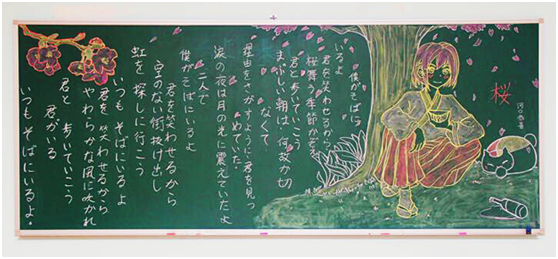 桜
河口恭吾
僕がそばに
いるよ
君を笑わせるから
桜舞う季節かぞえ
君と歩いていこう
まぶしい朝は 何故か切
なくて
理由をさがすように君を見つ
めていた
涙の夜は月の光に震えていたよ
二人で
僕がそばにいるよ
君を笑わせるから
空のない街抜け出し
虹を探しに行こう
いつもそばにいるよ
君を笑わせるから
やわらかな風に吹かれ
君と 歩いていこう
君がいる
いつもそばにいるよ。